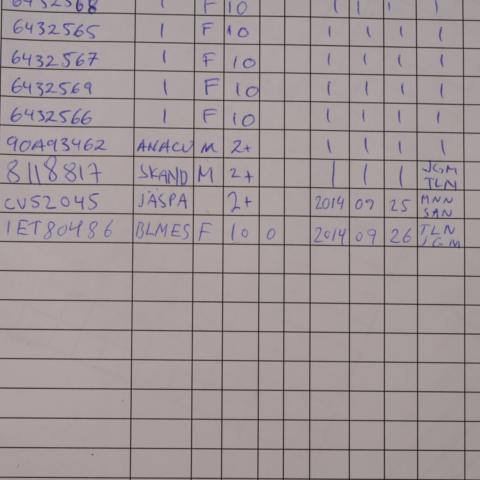 6432568 | F 10 | | | |
6432565 | F 10 | | | |
6432567 | F 10 | | | |
6432569 | F 10 | | | |
6432566 | F 10 | | | |
90A93462 ANACU M 2+ | | | |
8118817 SKAND M 2+ | | | JGM
TLN
CV52045 JASPA 2+ 2014 09 25 MNN
SAN
1ET80486 BLMES F 10 0 2014 09 26 TLN
JGM